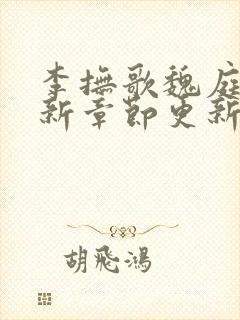 李撫歌魏庭
新章節更新
胡飛鴻